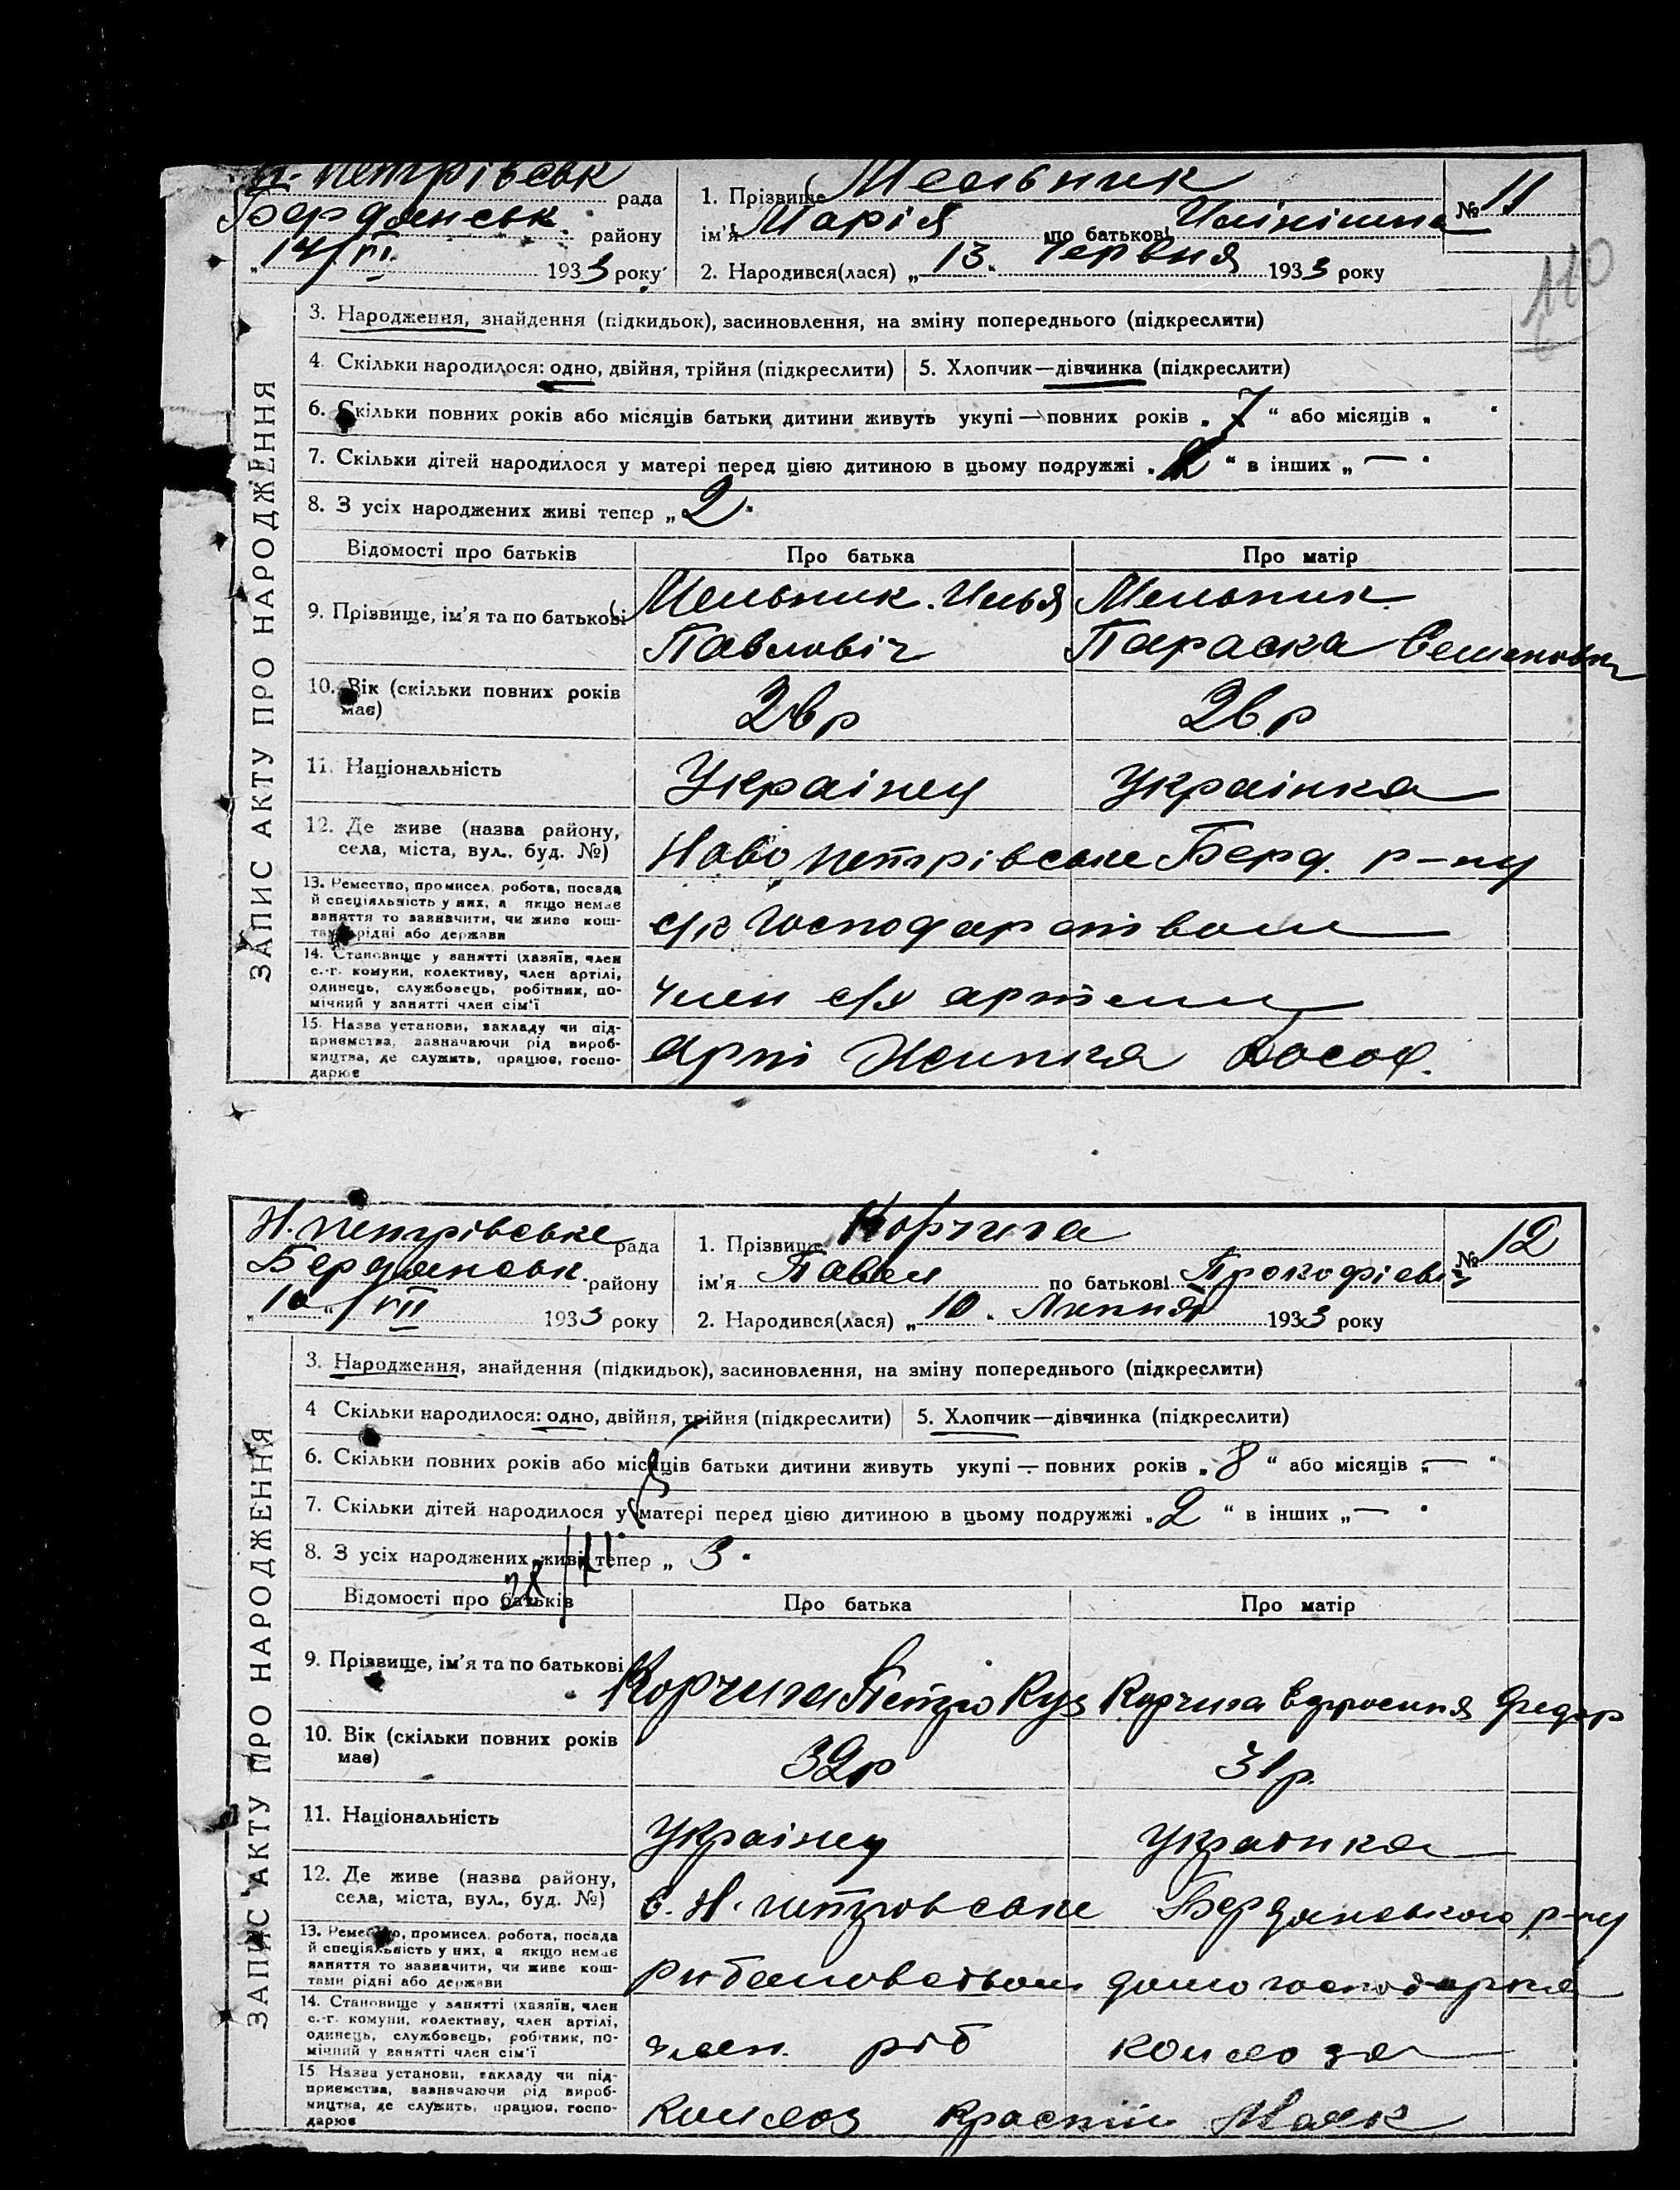 Н. Петрівськ рада
Бердянськ. району
„14/VI. 1933 року
1. Прізвище Мельник
ім'я Марія по батькові Ілінішна
2. Народився(лася) „13„ Червня 1933 року
№ 11
110
ЗАПИС АКТУ ПРО НАРОДЖЕННЯ
3. Народження, знайдення (підкидьок), засиновлення, на зміну попереднього (підкреслити)
4. Скільки народилося: одно, двійня, трійня (підкреслити) 5. Хлопчик—дівчинка (підкреслити)
6. Скільки повних років або місяців батьки дитини живуть укупі — повних років „7“ або місяців „ “
7. Скільки дітей народилося у матері перед цією дитиною в цьому подружжі „2“ в інших „—“
8. З усіх народжених живі тепер „2“
Відомості про батьків Про батька Про матір
9. Прізвище, ім'я та по батькові Мельник. Илья Мельник
Павловіч Параска Семеновн
10. Вік (скільки повних років має) 26р 26р
11. Національність Українец Українка
12. Де живе (назва району,
села, міста, вул., буд. №) Ново петрівське Берд. р-ну
13. Ремество, промисел, робота, посада
й спеціяльність у них, а якщо немає
заняття то зазначити, чи живе кош-
тами рідні або держави с/г господарством
14. Становище у занятті (хазяїн, член
с.-г. комуни, колективу, член артілі,
одинець, службовець, робітник, по-
мічний у занятті член сім'ї член с/х артели
15. Назва установи, закладу чи під-
приємства, зазначаючи рід вироб-
ництва, де служить, працює, госпо-
дарює Арті
Н. петрівське рада
Бердянськ. району
„10“/VII 1933 року
1. Прізвище Корчига
ім'я Павел по батькові Прокофієвіч
2. Народився(лася) „10„ Липня 1933 року
№ 12
ЗАПИС АКТУ ПРО НАРОДЖЕННЯ
3. Народження, знайдення (підкидьок), засиновлення, на зміну попереднього (підкреслити)
4 Скільки народилося: одно, двійня, трійня (підкреслити) 5. Хлопчик—дівчинка (підкреслити)
6. Скільки повних років або місяців батьки дитини живуть укупі — повних років „8“ або місяців „—“
7. Скільки дітей народилося у матері перед цією дитиною в цьому подружжі „2“ в інших „—“
8. З усіх народжених живі тепер „3“
Відомості про батьків Про батька Про матір
9. Прізвище, ім'я та по батькові Корчига Петро Куз Корчига Єфросиня Федор
10. Вік (скільки повних років має) 32р 31р.
11. Національність Українец Українка
12. Де живе (назва району,
села, міста, вул., буд. №) с. Н. петровське Бердянського р-ну
13. Ремество, промисел, робота, посада
й спеціяльність у них, а якщо немає
заняття то зазначити, чи живе кош-
тами рідні або держави Рибаловством домогосподарка
14. Становище у занятті (хазяїн, член
с.-г. комуни, колективу, член артілі,
одинець, службовець, робітник, по-
мічний у занятті член сім'ї член. риб колгоза
15 Назва установи, закладу чи під-
приємства, зазначаючи рід вироб-
ництва, де служить, працює, госпо-
дарює Колгоз Красний Маяк